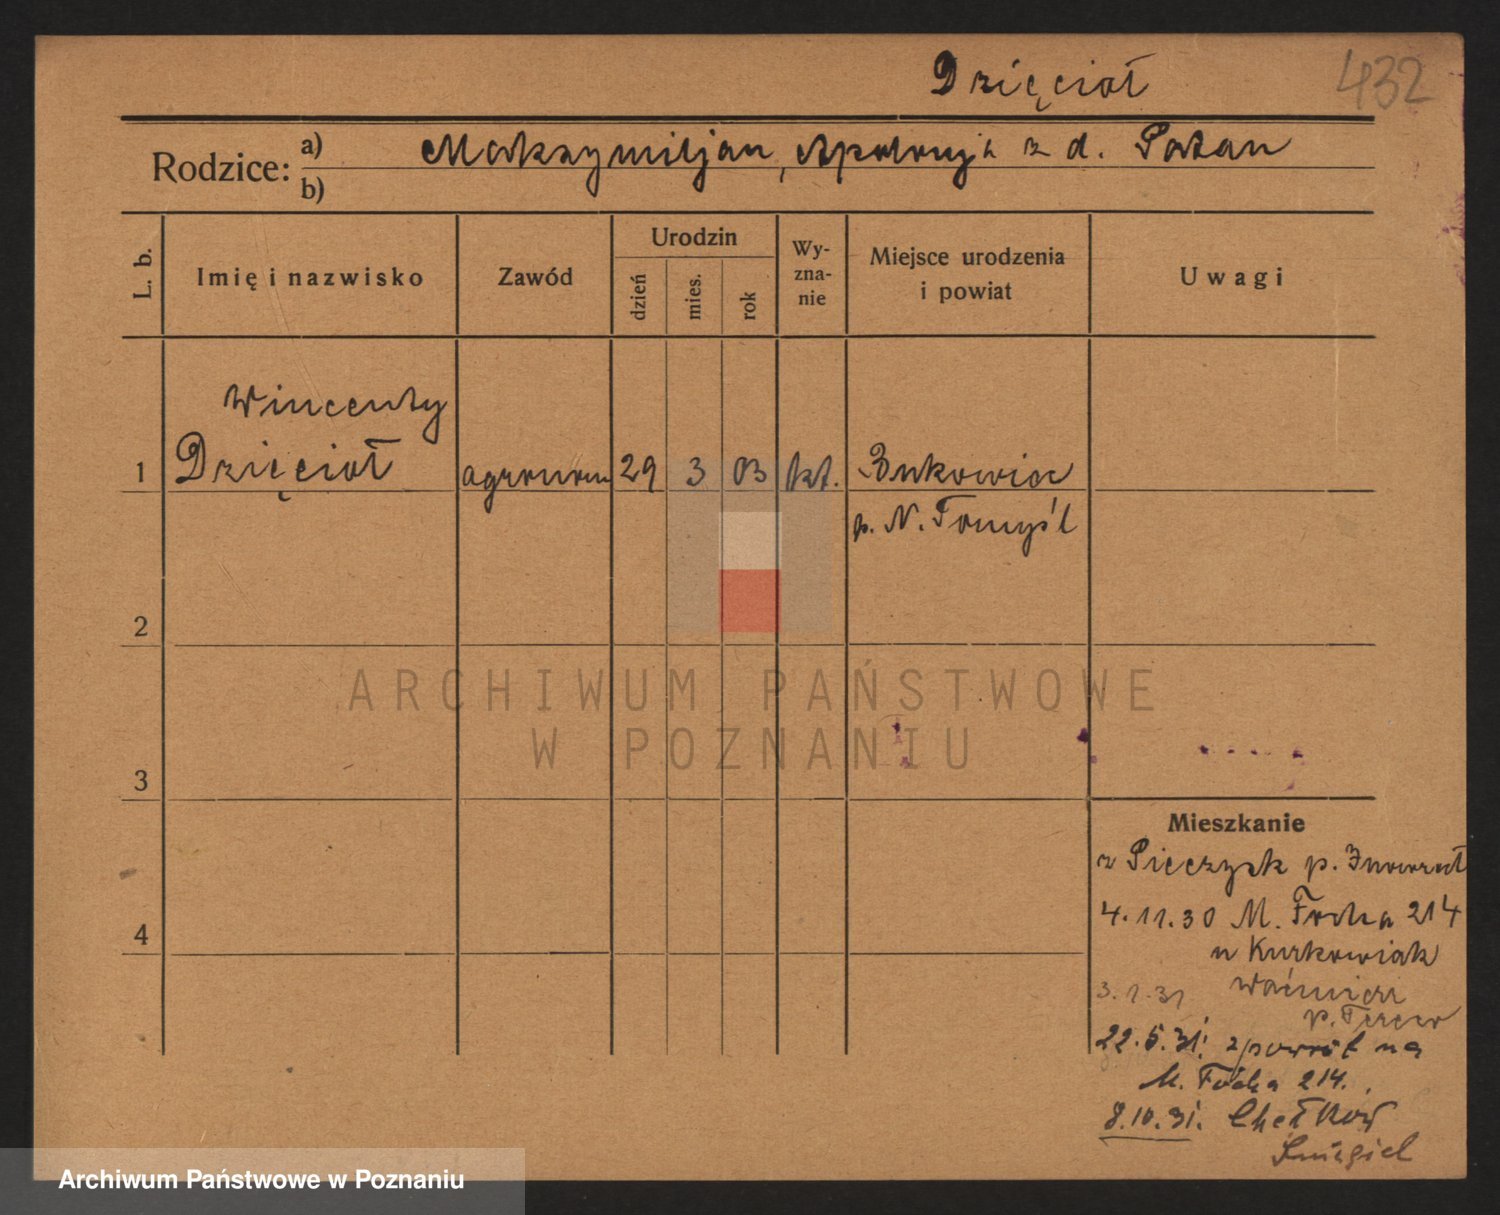 Dzięcioł
432
Rodzice:
a) Maksymiljan, Apolonja z d. Patan
b)
L. b.
Imię i nazwisko
Zawód
Urodzin
dzień
mies.
rok
Wy-
zna-
nie
Miejsce urodzenia
i powiat
Uwagi
Wincenty
1 Dzięcioł agronom 29 3 03 kt. Bukowiec
p. N. Tomyśl
2
ARCHIWUM PAŃSTWOWE
W POZNANIU
3
Mieszkanie
z p. Inowrocł
4
4.11.30 M. Focha 214
u Kurkowiak
3.1.31
22.5.31. zpowrót na
M. Focha 214.
8.10.31. Chełkow
Śmigiel
Archiwum Państwowe w Poznaniu